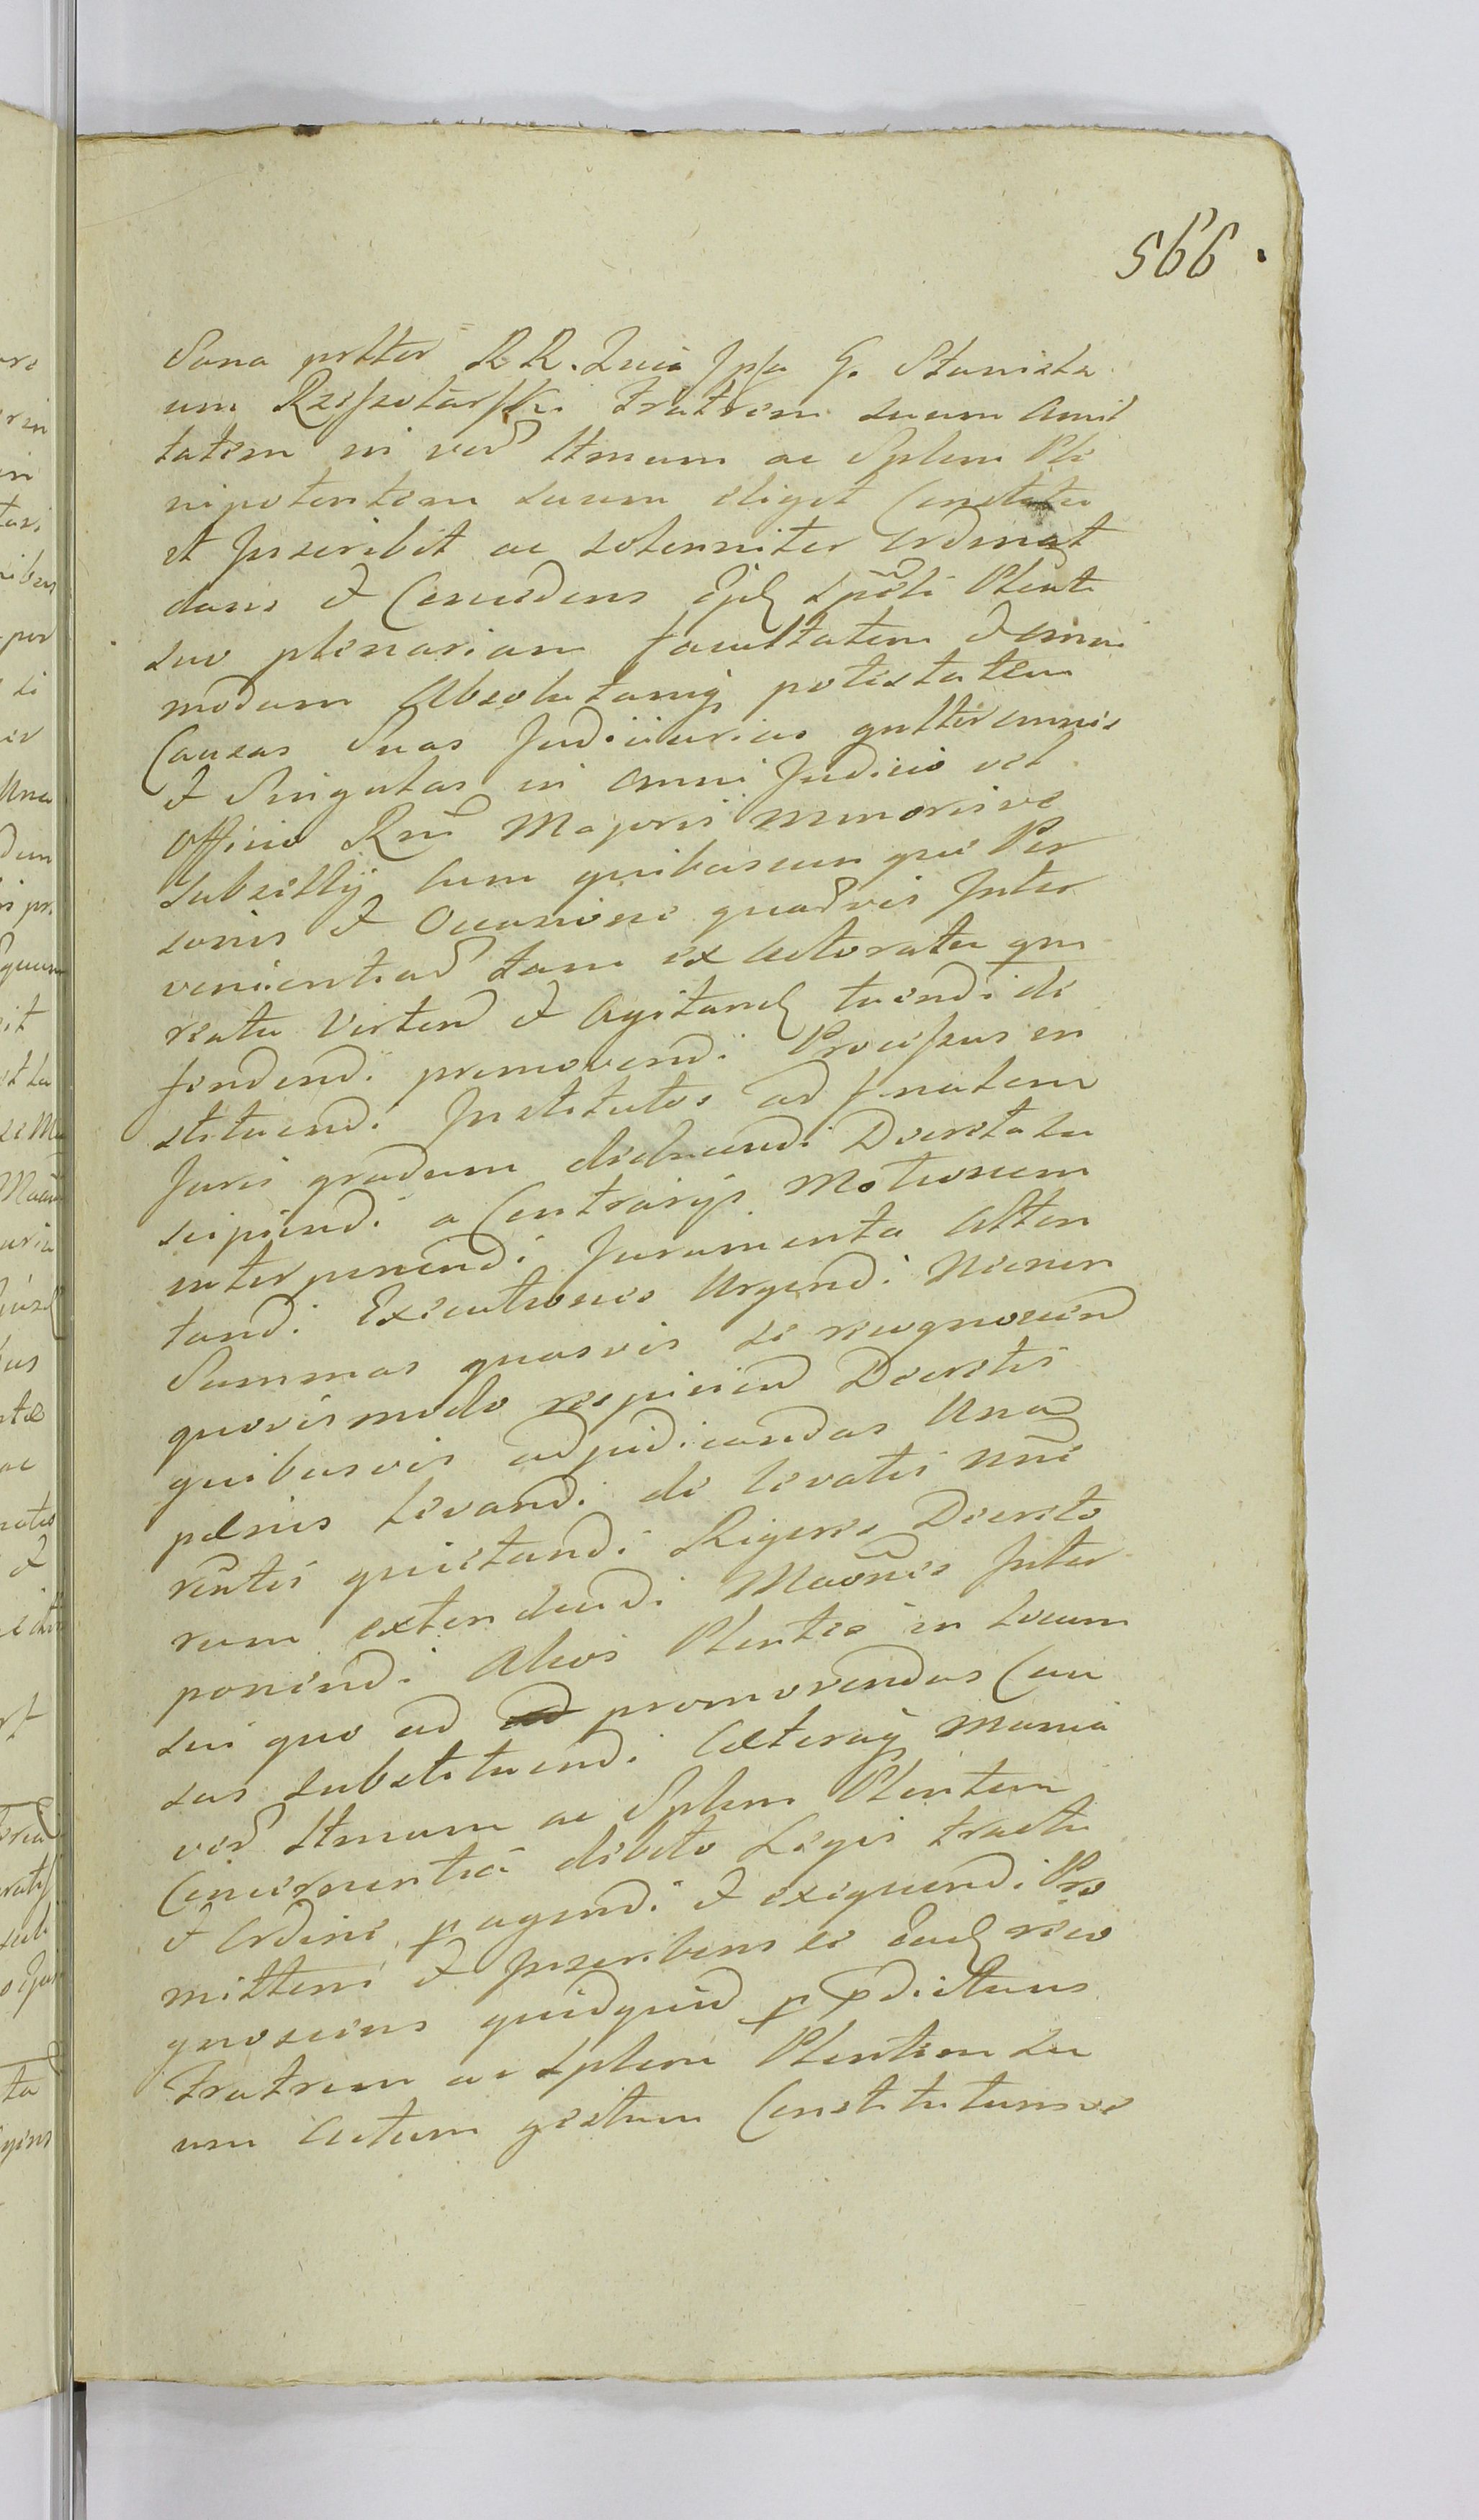 566.
Sana prtter RR. Quia Ipsa G. Stanisla
um Rzeszotarski Fratrem suum Amit
tatem in verd Itmum ac Splem Ple
nipotentem suum eliget Constitu
et Inscribit ac solenniter Ordinat
dans et Concedens Splti Plenti
suo plenariam facultatem et omni
modam Absolutamq potestatem
Causas Suas Judiciarias gnltter omnes
et Singulas in omni Judicio vel
Officio Rni Majoris minorisve
Subsellij cum quibuscunque Per
sonis et Occasione quadvis Inter
venientiad tam ex Actoratu qm
reatu Verten et Agitand tuendi de
fendendi promovendi Processus in
stituendi Institutos ad finalem
Juris gradum deducendi Decreta su
scipiendi a Contrarijs Motionem
interponendi Juramenta Atten
tandi Executiones Urgendi Necnon
Summas quasvis se recognoscend
quovismodo respiciend Decretis
quibusvis adjudicandas Una
pœnis Levandi de levatis nni
rentis quietandi Rigores Decreto
rum extendendi Maones Inter
ponendi Alios Plentes in Locum
sui quo ad ad promovendas Cau
sas substituendi Cæteraq munia
verd Itmum ac Splem Plentem
Concernentia debito Legis tractu
et Ordine pagendi et exequendi Pro
mittens et Inscribens se Eand reco
gnoscens quidquid p pdictum
Fratrem ac Splem Plentem su
um Actum gestum Constitutumve